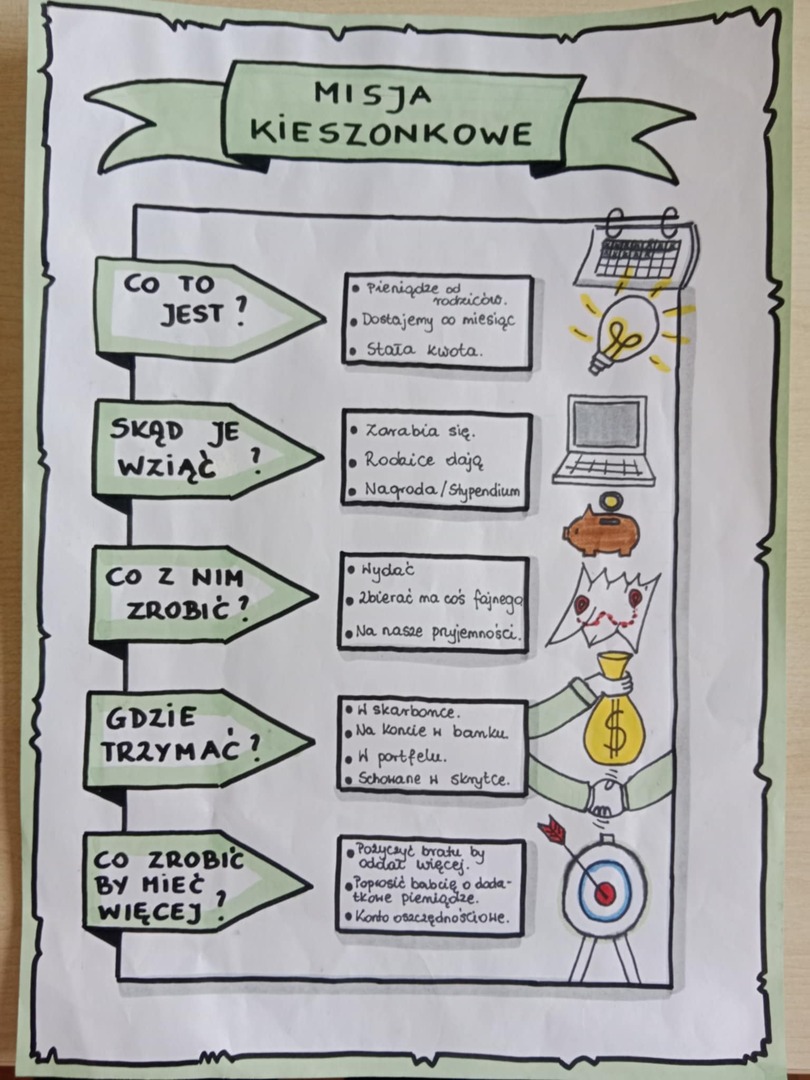 MISJA
KIESZONKOWE
CO TO
JEST?
• Pieniądze od
rodziców.
• Dostajemy co miesiąc
• Stała kwota.
SKĄD JE
WZIĄĆ ?
• Zarabia się.
• Rodzice dają
• Nagroda/Stypendium
CO Z NIM
ZROBIĆ?
• Wydać
• Zbierać na coś fajnego
• Na nasze przyjemności.
GDZIE
TRZYMAĆ?
• W skarbonce.
• Na koncie w banku.
• W portfelu.
• Schowane w skrytce.
CO ZROBIĆ
BY MIEĆ
WIĘCEJ?
• Pożyczyć bratu by
oddał więcej.
• Poprosić babcię o doda-
tkowe pieniądze.
• Konto oszczędnościowe.
$